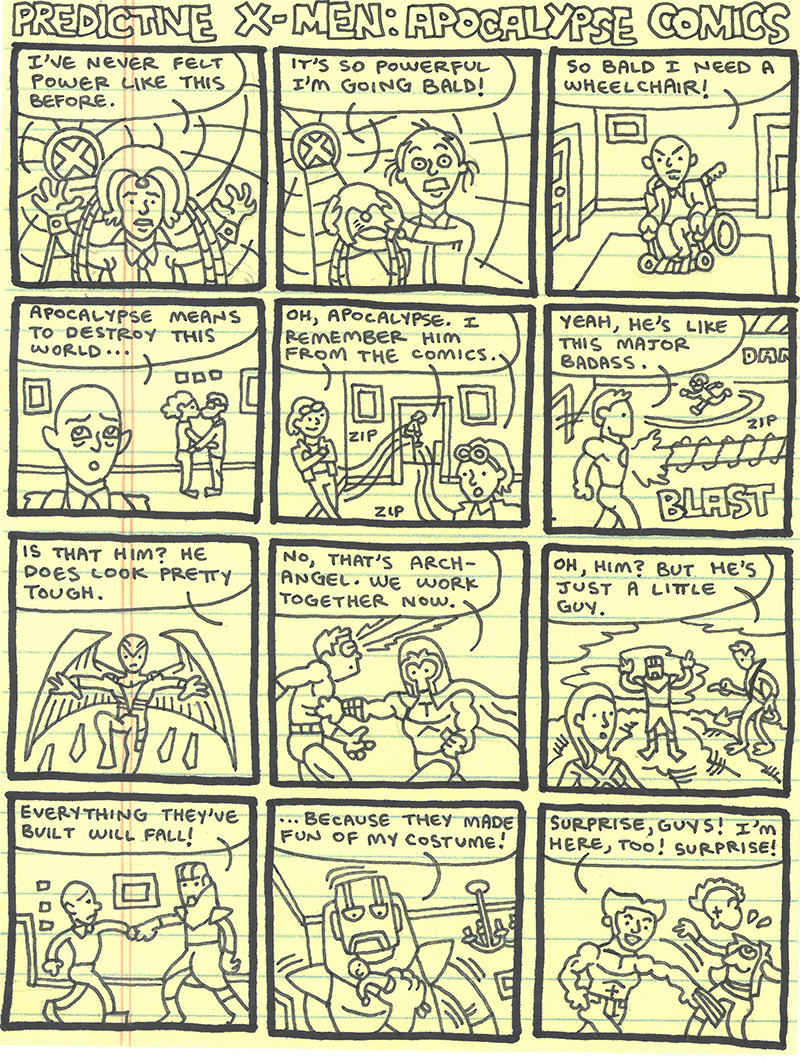 PREDICTIVE X-MEN: APOCALYPSE COMICS
I'VE NEVER FELT
POWER LIKE THIS
BEFORE.
IT'S SO POWERFUL
I'M GOING BALD!
SO BALD I NEED A
WHEELCHAIR!
APOCALYPSE MEANS
TO DESTROY THIS
WORLD...
OH, APOCALYPSE. I
REMEMBER HIM
FROM THE COMICS.
ZIP
ZIP
YEAH, HE'S LIKE
THIS MAJOR
BADASS.
DAN
ZIP
BLAST
IS THAT HIM? HE
DOES LOOK PRETTY
TOUGH.
NO, THAT'S ARCH-
ANGEL. WE WORK
TOGETHER NOW.
OH, HIM? BUT HE'S
JUST A LITTLE
GUY.
EVERYTHING THEY'VE
BUILT WILL FALL!
...BECAUSE THEY MADE
FUN OF MY COSTUME!
SURPRISE, GUYS! I'M
HERE, TOO! SURPRISE!